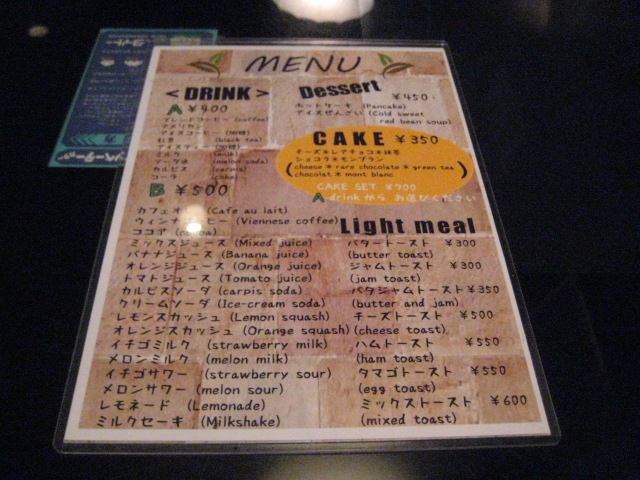 MENU
<DRINK>
A ¥400
ブレンドコーヒー (coffee)
アメリカン
アイスコーヒー
紅茶 (black tea)
アイスティー
ミルク (milk)
ソーダ水 (melon soda)
カルピス (carpis)
コーラ (coke)
B ¥500
カフェオ (Cafe au lait)
ウィンナ ヒー (Viennese coffee)
ココア
ミックスジュース (Mixed juice)
バナナジュース (Banana juice)
オレンジジュース (Orange juice)
トマトジュース (Tomato juice)
カルピスソーダ (carpis soda)
クリームソーダ (Ice-cream soda)
レモンスカッシュ (Lemon squash)
オレンジスカッシュ (Orange squash)
イチゴミルク (strawberry milk)
メロンミルク (melon milk)
イチゴサワー (strawberry sour)
メロンサワー (melon sour)
レモネード (Lemonade)
ミルクセーキ (Milkshake)
Dessert
¥450
ホットケーキ (Pancake)
アイスぜんざい (Cold sweet
red bean soup)
CAKE ¥350
チーズ*レアチョコ*抹茶
ショコラ*モンブラン
(cheese * rare chocolate * green tea
chocolat * mont blanc)
CAKE SET ¥700
A drinkから お選びください
Light meal
バタートースト ¥300
(butter toast)
ジャムトースト ¥300
(jam toast)
バタジャムトースト ¥350
(butter and jam)
チーズトースト ¥500
(cheese toast)
ハムトースト ¥550
(ham toast)
タマゴトースト ¥550
(egg toast)
ミックストースト ¥600
(mixed toast)